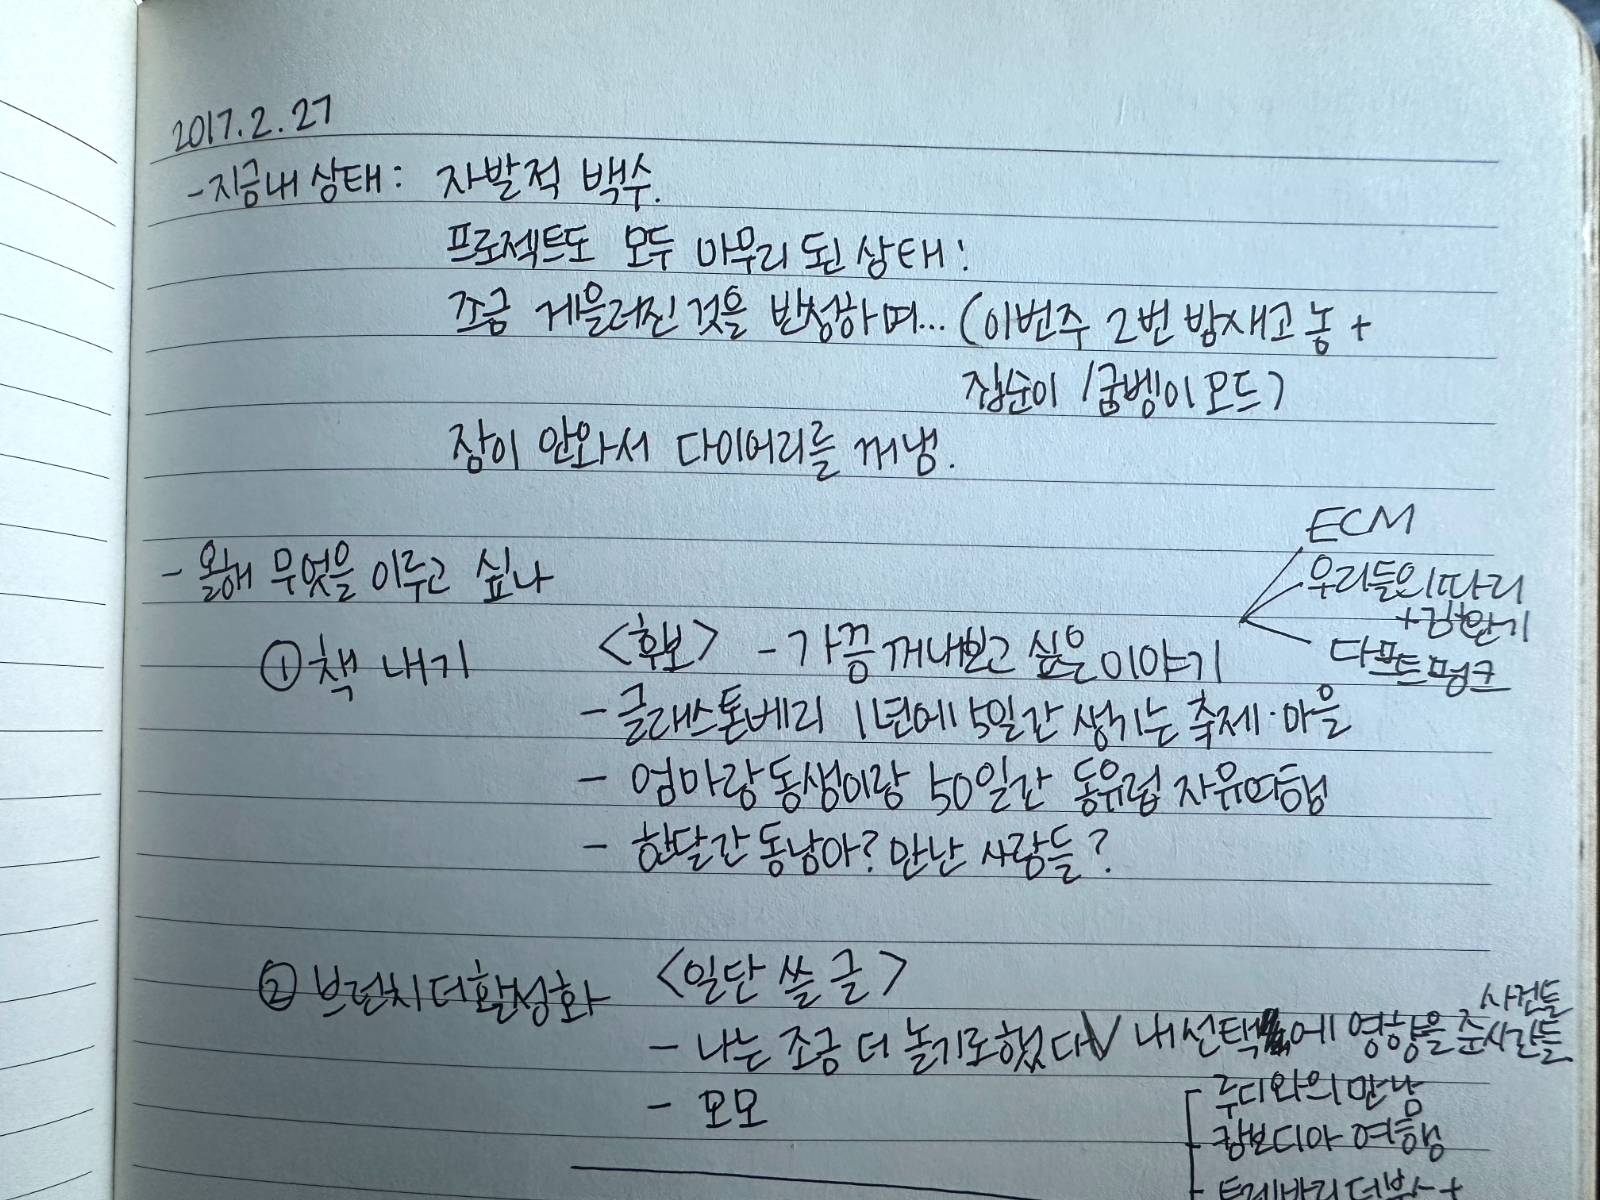 2017.2.27
- 지금 내 상태: 자발적 백수.
프로젝트도 모두 마무리 된 상태!
조금 게을러진 것을 반성하며... (이번주 2번 밤새고 놈 +
집순이 / 굼벵이 모드)
잠이 안와서 다이어리를 꺼냄.
- 올해 무엇을 이루고 싶나
① 책 내기 <후보> - 가끔 꺼내보고 싶은 이야기
ECM
우리들의 따리
다프트펑크
- 글래스톤베리 1년에 5일간 생기는 축제·마을
- 엄마랑 동생이랑 50일간 동유럽 자유여행
- 한달간 동남아? 만난 사람들?
② 브런치 더 활성화 <일단 쓸 글>
- 나는 조금 더 놀기로 했다 V 내 선택에 영향을 준 사람들
사건들
- 모모
루디와의 만남
캄보디아 여행